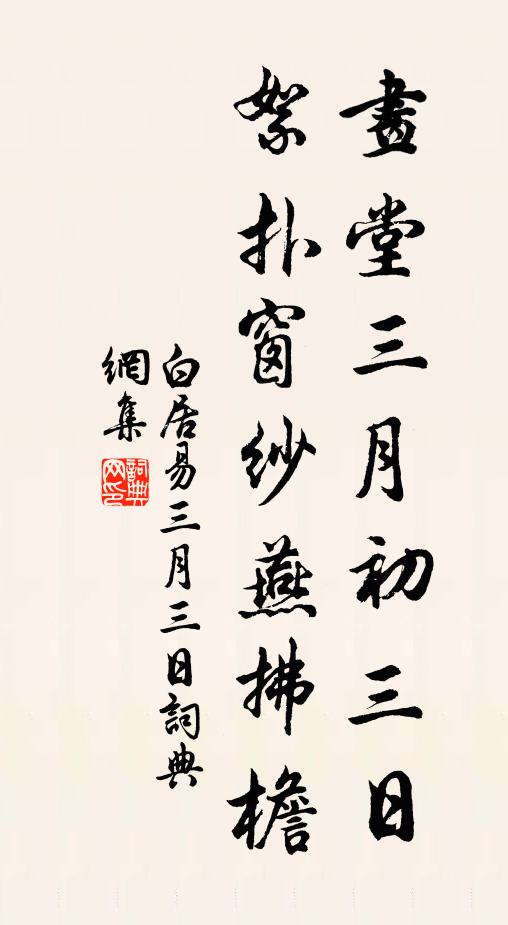 畫堂三月初三日
絮扑窗紗燕拂檐
白居易三月三日詞典
網集
詞典網印